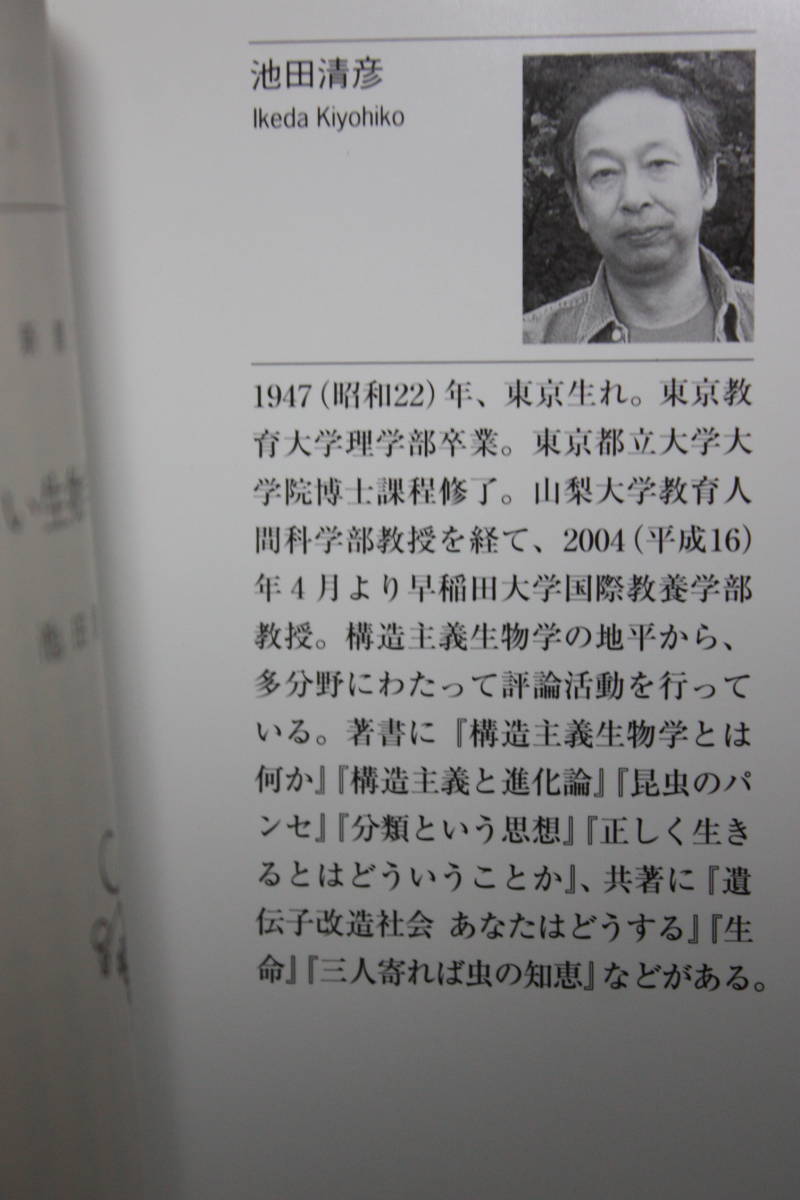 池田清彦
Ikeda Kiyohiko
1947(昭和22)年、東京生れ。東京教
育大学理学部卒業。東京都立大学大
学院博士課程修了。山梨大学教育人
間科学部教授を経て、2004(平成16)
年4月より早稲田大学国際教養学部
教授。構造主義生物学の地平から、
多分野にわたって評論活動を行って
いる。著書に『構造主義生物学とは
何か』『構造主義と進化論』『昆虫のパ
ンセ』『分類という思想』『正しく生き
るとはどういうことか』、共著に『遺
伝子改造社会 あなたはどうする』『生
命』『三人寄れば虫の知恵』などがある。
い生物
池田